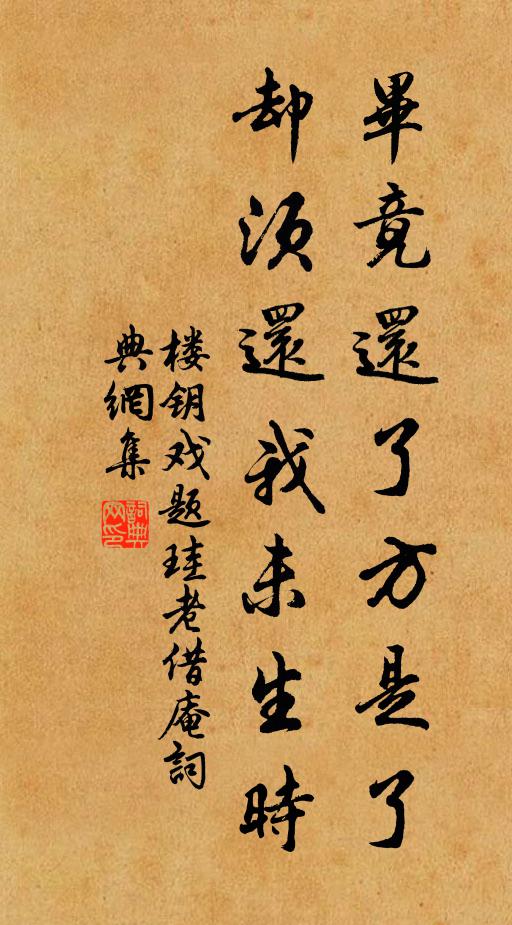 畢竟還了方是了
却須還我未生時
楼钥戏题珪老借庵詞
典網集
詞典網印